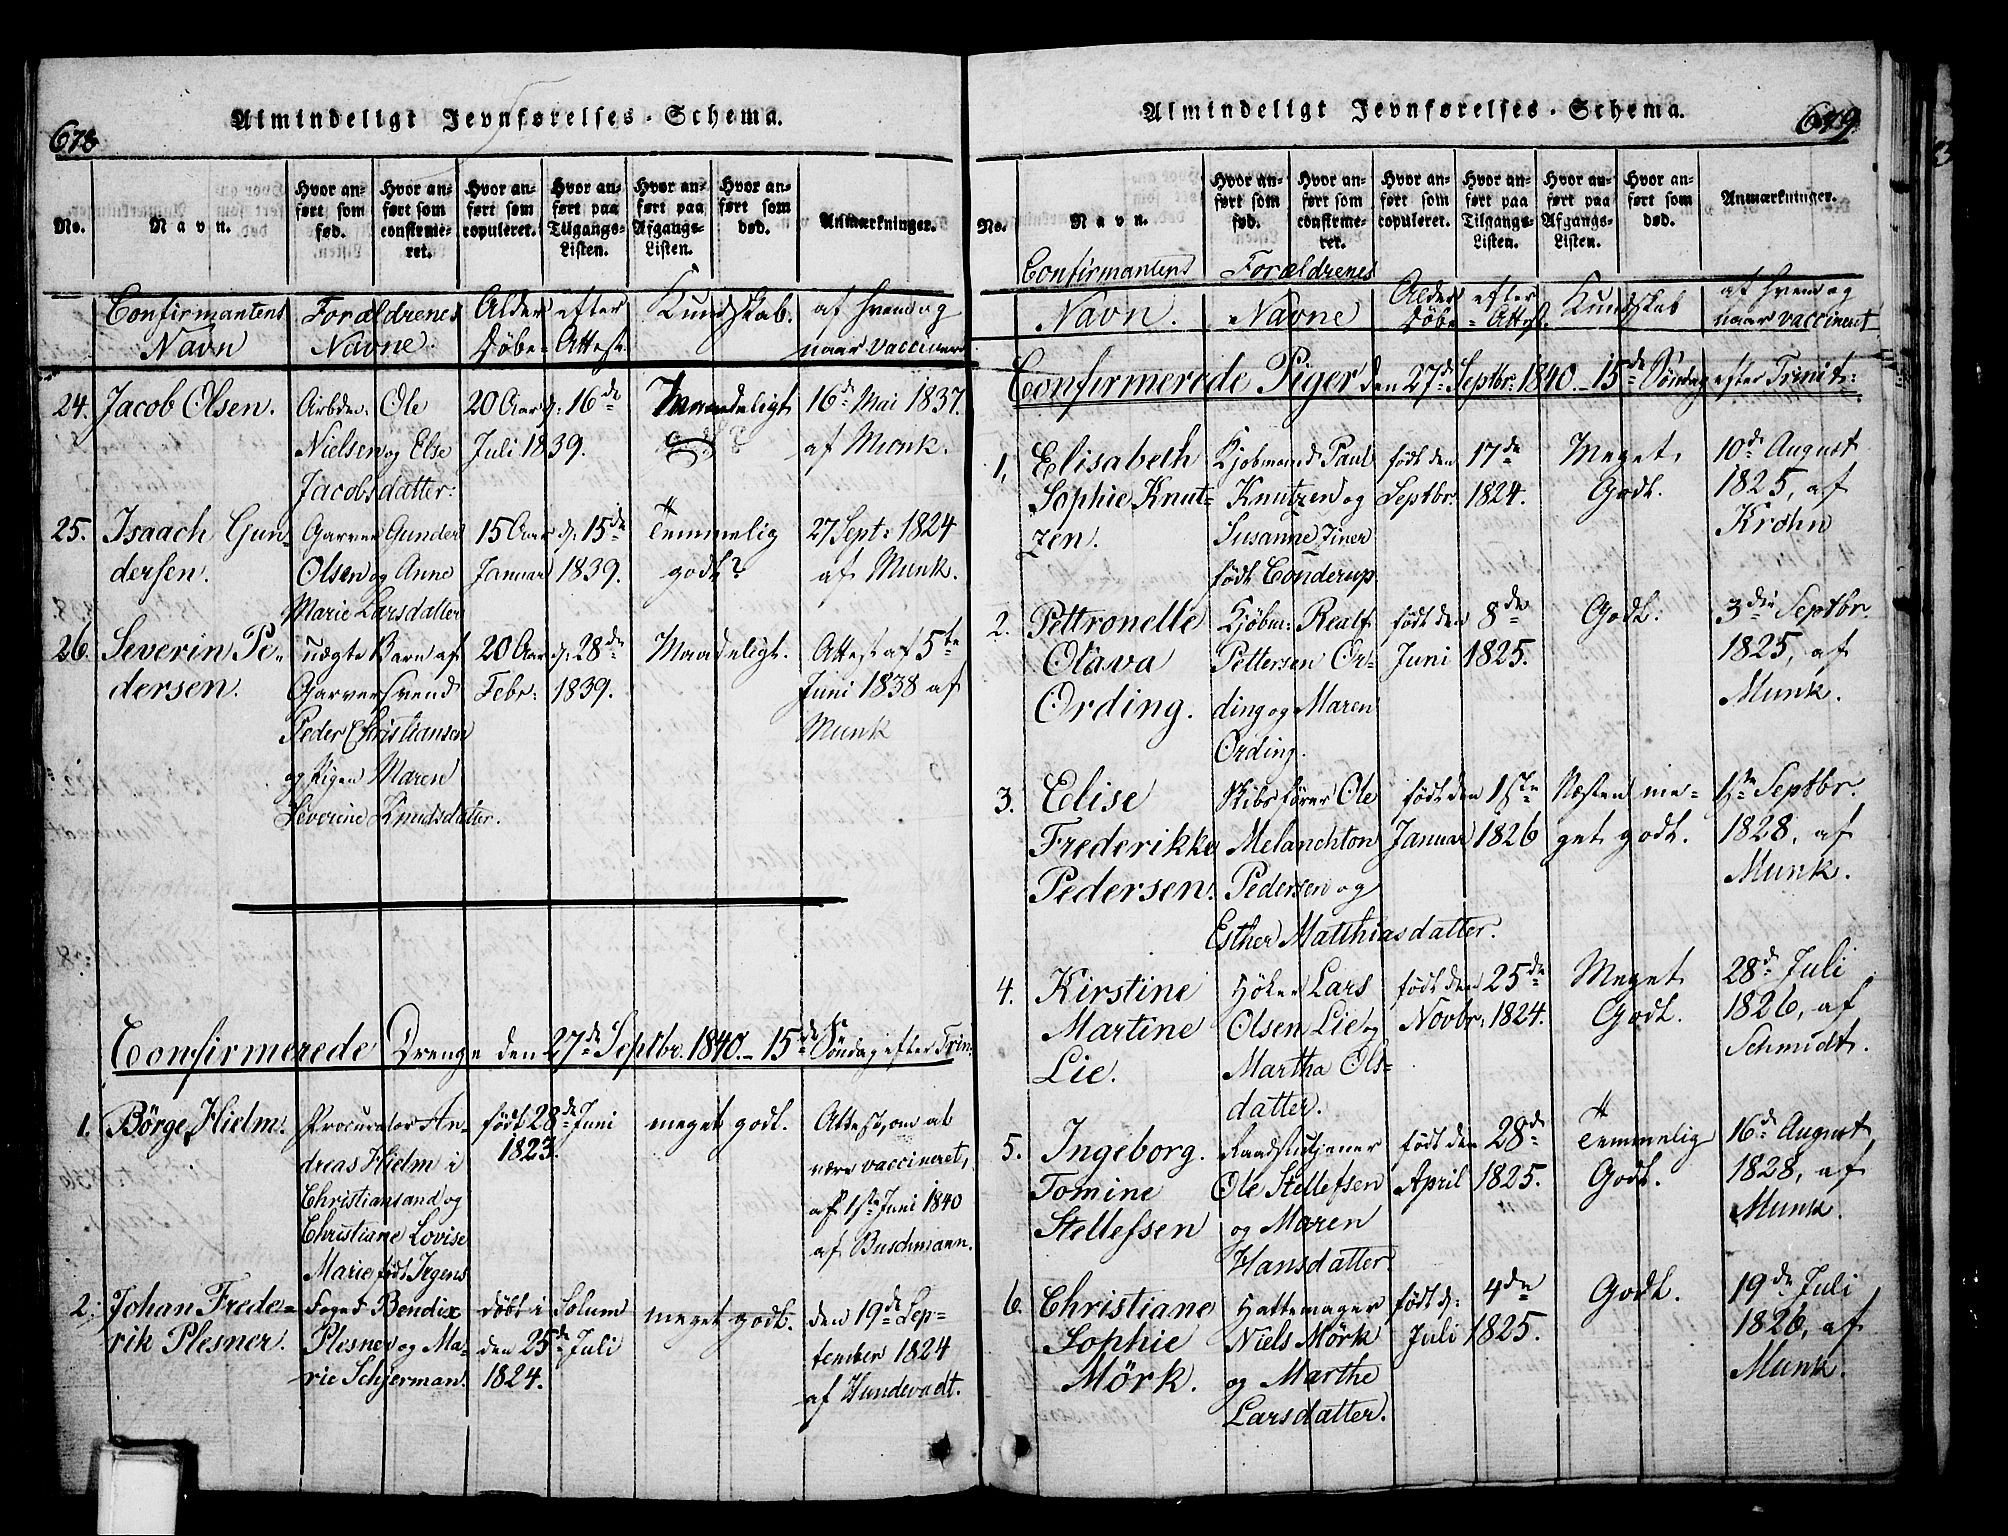 678
Almindeligt Jevnførelses-Schema.
No.
Navn.
Hvor anført som fød.
Hvor anført som confirmeret.
Hvor anført som copuleret.
Hvor anført paa Tilgangs-Listen.
Hvor anført paa Afgangs-Listen.
Hvor anført som død.
Anmærkninger.
Confirmantens Navn
Forældrenes Navne.
Alder efter Døbe-Attest
Kundskab.
af hvem og naar vaccineret
24. Jacob Olsen.
Arbdr. Ole
Nielsen og Else
Jacobsdatter:
20 Aar d: 16de
Juli 1839.
Maadeligt
16de Mai 1837.
af Monk.
25. Isaach Gun-
dersen.
Garver Gunder
Olsen og Anne
Marie Larsdatter
15 Aar d: 15de
Januar 1839.
Temmelig
godt?
27 Sept: 1824
af Munk.
26. Severin Pe-
dersen.
uægte Barn af
Garversvend
Peder Christiansen
og Pigen Maren
Severine Knudsdatter.
20 Aar d: 28de
Febr: 1839.
Maadeligt.
Attest af 5te
Juni 1838 af
Munk
Confirmerede Drenge den 27de Septbr. 1840. - 15de Søndag efter Trin:
1. Börge Hielm.
Procurator An-
dreas Hielm i
Christiansand og
Christiane Lovise
Marie født Irgens
født 28de Juni
1823.
meget godt.
Attest, om at
være vaccineret,
af 1ste Juni 1840
af Buschmann.
2. Johan Frede-
rik Plesner.
Foged Bendix
Plesner og Ma-
rie Schjerman.
døbt i Solum
den 25de Juli
1824.
meget godt.
den 19de Sep-
tember 1824
af Hundevadt.
Almindeligt Jevnførelses-Schema.
679
No.
Navn.
Hvor anført som fød.
Hvor anført som confirmeret.
Hvor anført som copuleret.
Hvor anført paa Tilgangs-Listen.
Hvor anført paa Afgangs-Listen.
Hvor anført som død.
Anmærkninger.
Confirmantens Navn.
Forældrenes Navne
Alder efter Døbe-Attest.
Kundskab
af hvem og naar vaccineret
Confirmerede Piger den 27de Septbr. 1840. - 15de Søndag efter Trinit:
1. Elisabeth
Sophie Knut-
zen.
Kjøbmand Paul
Knutzen og
Susanne Ziner
født Conderup
født den 17de
Septbr. 1824.
Meget
Godt.
10de August
1825, af
Krohn
2. Pettronelle
Olava
Ording.
Kjøbm: Realf
Pettersen Or-
ding og Maren
Ording.
født den 8de
Juni 1825.
Godt.
3die Septbr.
1825, af
Munk.
3. Elise
Frederikke
Pedersen.
Skibsfører Ole
Melanchton
Pedersen og
Esther Matthiasdatter.
født den 1ste
Januar 1826
Næsten me-
get godt.
1ste Septbr.
1828, af
Munk.
4. Kirstine
Martine
Lie.
Høker Lars
Olsen Lie og
Martha Ols-
datter.
født den 25de
Novbr. 1824.
Meget
Godt.
28de Juli
1826, af
Schmidt.
5. Ingeborg
Tomine
Stellefsen
Raadstutjener
Ole Stellefsen
og Maren
Hansdatter.
født den 28de
April 1825.
Temmelig
Godt.
16de August
1828, af
Munk.
6. Christiane
Sophie
Mörk.
Hattemager
Niels Mörk
og Marthe
Larsdatter.
født d: 4de
Juli 1825.
Godt.
19de Juli
1826, af
Munk.